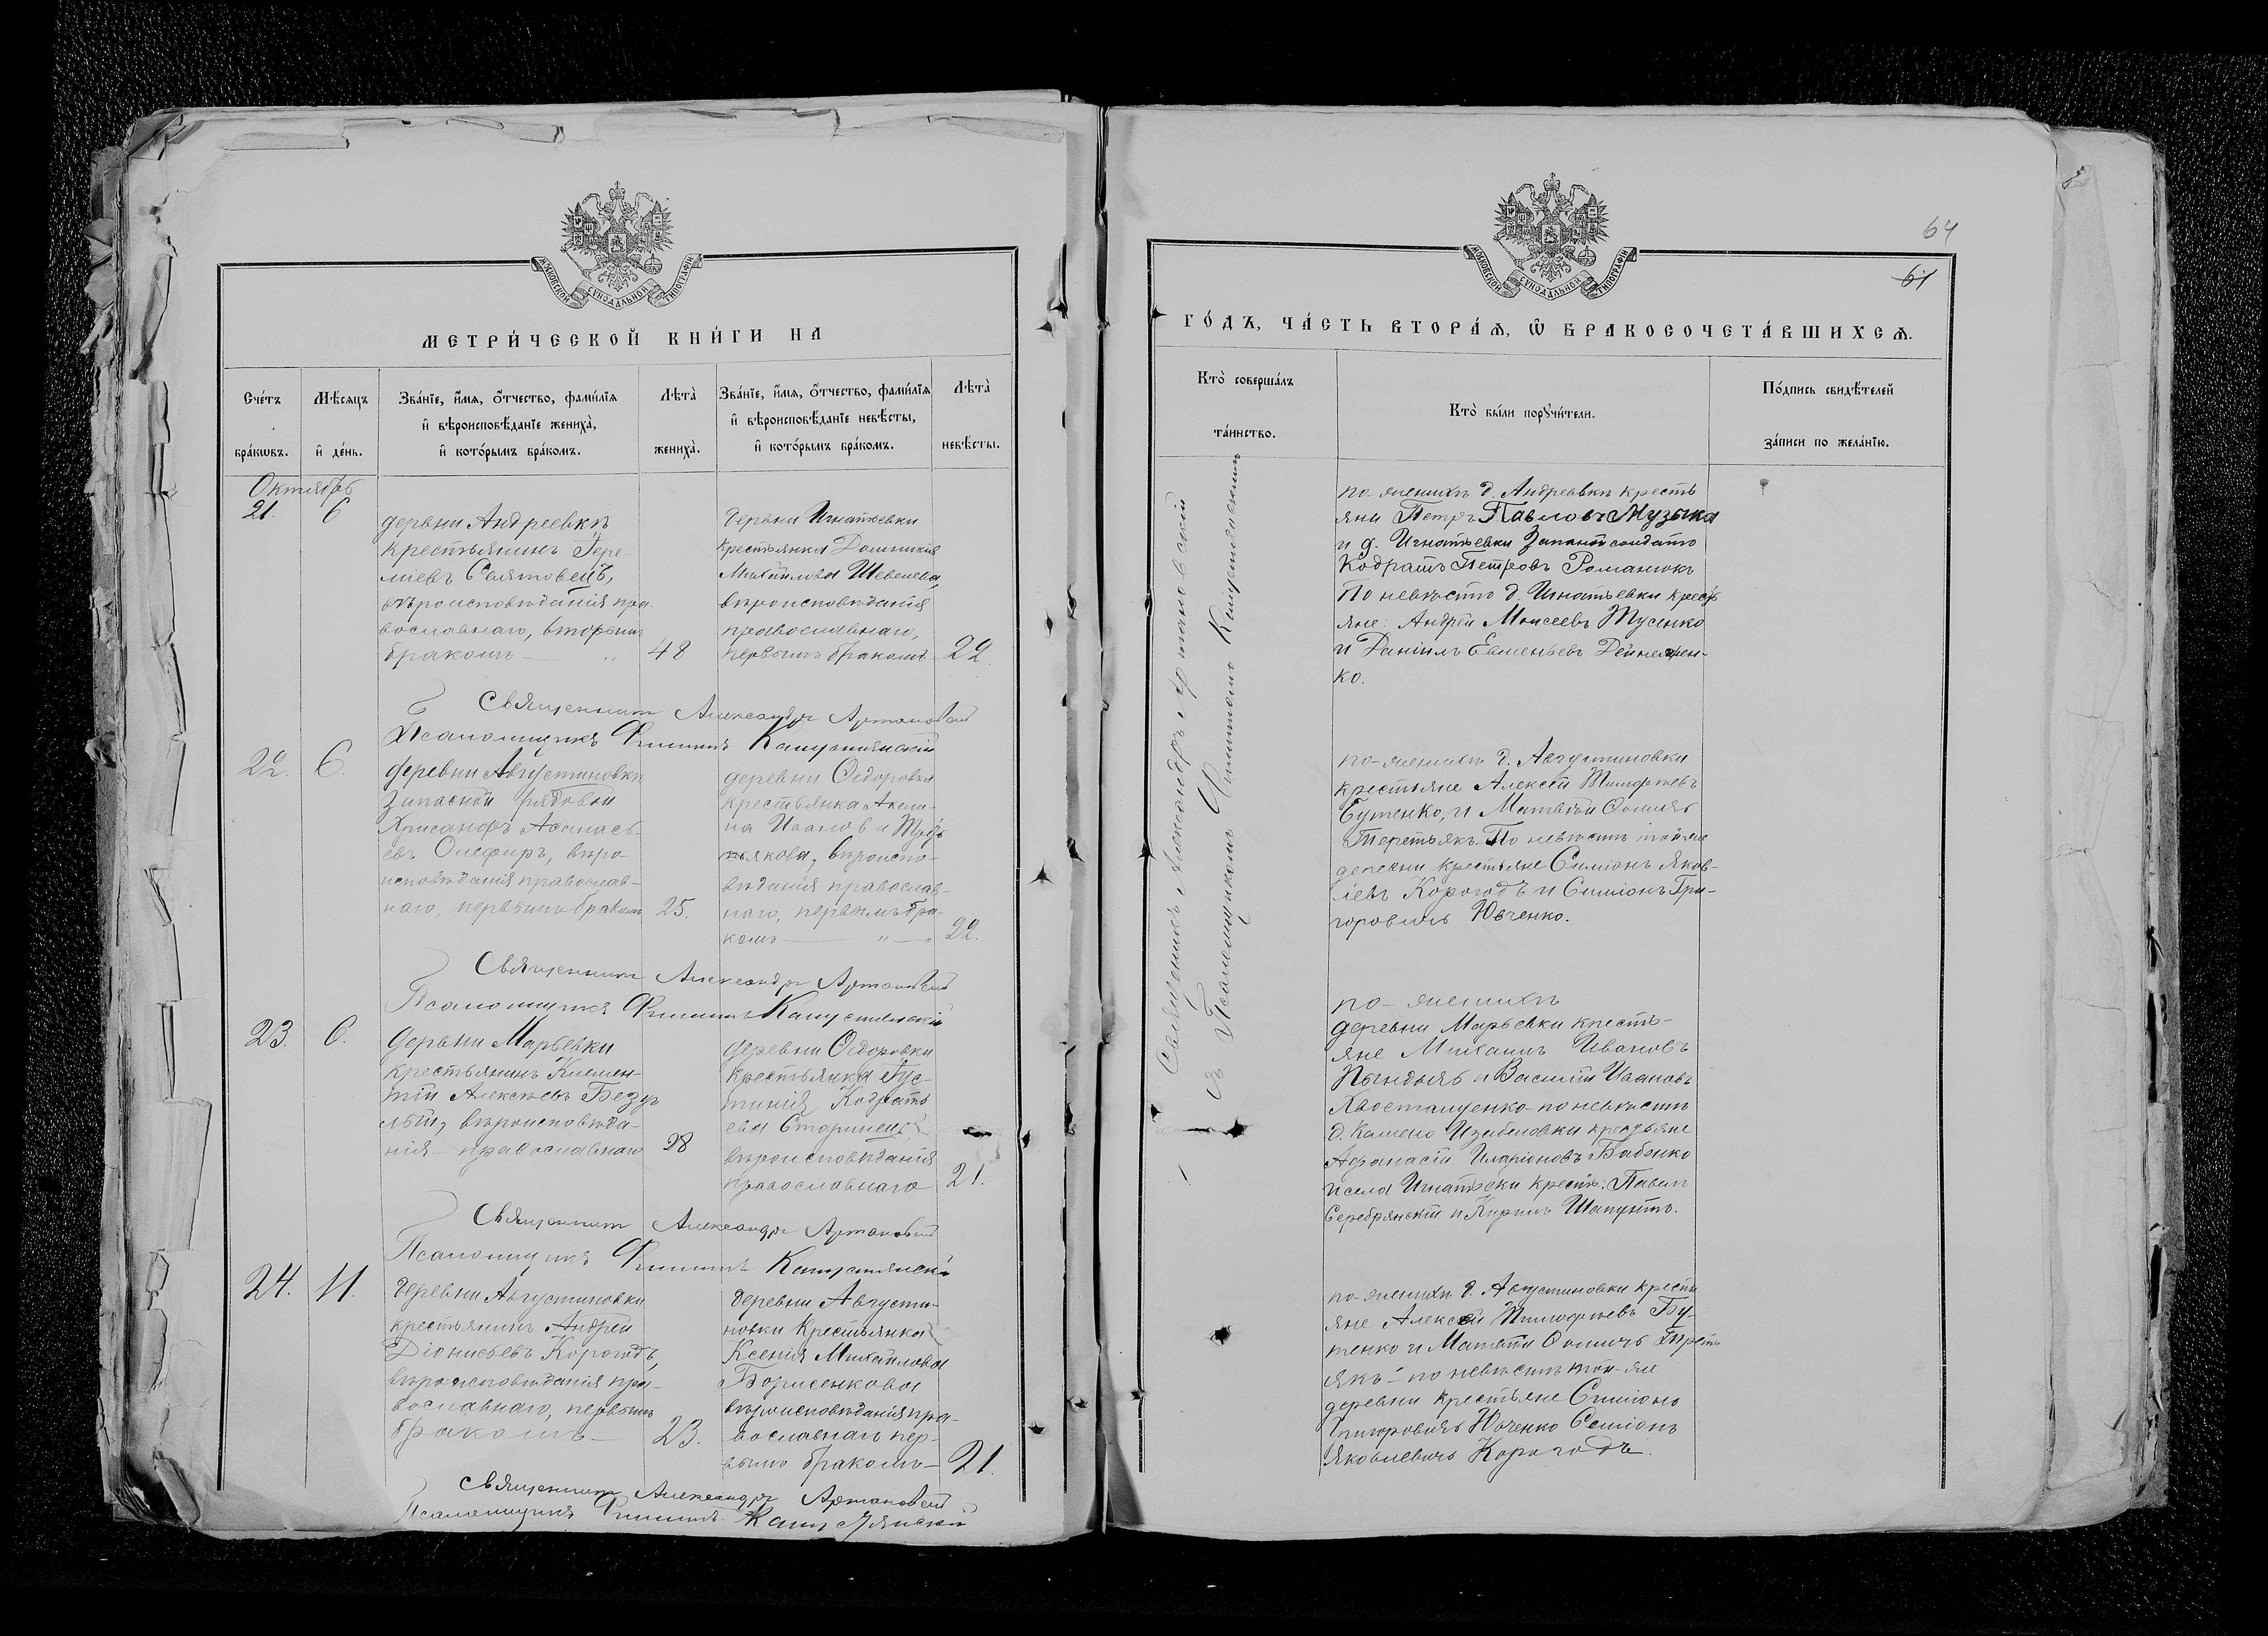 МЕТРИ́ЧЕСКОЙ КНИ́ГИ НА
МОСКОВСКОЙ СѴНОДАЛЬНОЙ ТИПОГРАФІИ
Сче́тъ бра́кѡвъ.
Мѣ́сѧцъ и҆ де́нь.
Зва́нїе, и҆́мѧ, ѻ҆́тчество, фамѝлїѧ
и҆ вѣроисповѣ́данїе жениха̀,
и҆ кото́рымъ бра́комъ.
Лѣта̀ жениха̀.
Зва́нїе, и҆́мѧ, ѻ҆́тчество, фамѝлїѧ
и҆ вѣроисповѣ́данїе невѣ́сты,
и҆ кото́рымъ бра́комъ.
Лѣта̀ невѣ́сты.
Октябрь
21. 6
деревни Андреевки
крестьянинъ
вѣроисповѣданія пра-
вославнаго, вторымъ
бракомъ — 48
деревни Игнатьевки
крестьянка Домникія
Михайлова Шевелева,
вѣроисповѣданія
православнаго,
первымъ бракомъ — 22
Священникъ Александръ Артановскій
Псаломщикъ Филиппъ Капустянскій
22. 6.
деревни Августиновки
Запасной рядовой
Хрисанфъ Аѳанась-
евъ Олефиръ, вѣро-
исповѣданія православ-
наго, первымъ бракомъ 25.
деревни Ѳедоровки
крестьянка Акели-
на Иванова
вѣроиспо-
вѣданія православ-
наго, первымъ бра-
комъ — „ — „ 22.
Священникъ Александръ Артановскій
Псаломщикъ Филиппъ Капустянскій
23. 6.
деревни Марьевки
крестьянинъ Климен-
тій Алексѣевъ Безу-
лый, вѣроисповѣда-
нія православнаго 28
деревни Ѳедоровки
крестьянка Іус-
тинія Кодрать
ева Старинецъ
вѣроисповѣданія
православнаго 21.
Священникъ Александръ Артановскій
Псаломщикъ Филиппъ Капустянскій
24. 11.
деревни Августиновки
крестьянинъ Андрей
Діонисьевъ Корогодъ,
вѣроисповѣданія пра-
вославнаго, первымъ
бракомъ — 23.
деревни Августи-
новки крестьянка
Ксенія Михайлова
Борисенкова
вѣроисповѣданія пра-
вославнаго пер-
вымъ бракомъ — 21.
Священникъ Александръ Артановскій
Псаломщикъ Филиппъ Капустянскій
64
61
МОСКОВСКОЙ СѴНОДАЛЬНОЙ ТИПОГРАФІИ
ГО́ДЪ, ЧА́СТЬ ВТОРА́Ѧ, Ѽ БРАКОСОЧЕТА́ВШИХСѦ.
Кто̀ соверша́лъ
та́инство.
Кто̀ бы́ли порꙋчи́тели.
По́дпись свидѣ́телей
за́писи по жела́нїю.
Священникъ Александръ Артановскій
съ Псаломщикомъ Филиппомъ Капустянскимъ
по-женихѣ д. Андреевки кресть
яни Петръ Павловъ Музыка
и д. Игнатьевки Запасн солдатъ
Кодратъ Петровъ Романюкъ
По невѣстѣ д. Игнатьевки крест
яне: Андрей Моисеевъ Тусенко
и Даніилъ Евменьевъ
ко.
по-женихѣ д. Августиновки
крестьяне Алексѣй Тимофѣевъ
Бутенко, и Матвѣй Ѳомичъ
Третьякъ. По невѣстѣ той же
деревни крестьяне Симіонъ Яков-
левъ Корогодъ и Симіонъ Гри-
горовичъ Ювченко.
по-женихѣ
деревни Марьевки кресть-
яне Михаилъ Ивановъ
и Василій Ивановъ
Хвостащенко по невѣстѣ
д. Камено Изабеловки крестьяне
Афанасій Иларіоновъ Бабенко
и села Игнатьевки крест: Павелъ
Серебрянскій и Кирилъ Шапуптъ.
по-женихѣ д. Августиновки кресть
яне Алексѣй Тимофѣевъ Бу-
тенко и Матвѣй Ѳомичъ Треть
якъ — по невѣстѣ той-же
деревни крестьяне Симіонъ
Григоровичъ Ювченко Семіонъ
Яковлевичъ Корогодъ.